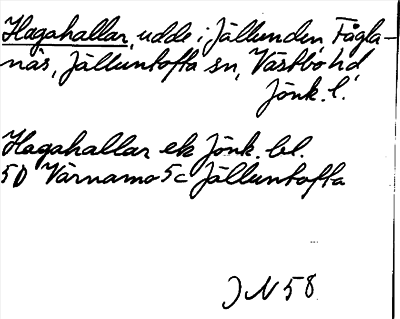 Hagahallar, udde i Jällunden, Fågla-
näs, Jälluntofta sn, Västbo hd
Jönk. l.
Hagahallar ek Jönk. bl.
5D Värnamo 5c Jälluntofta
JN 58